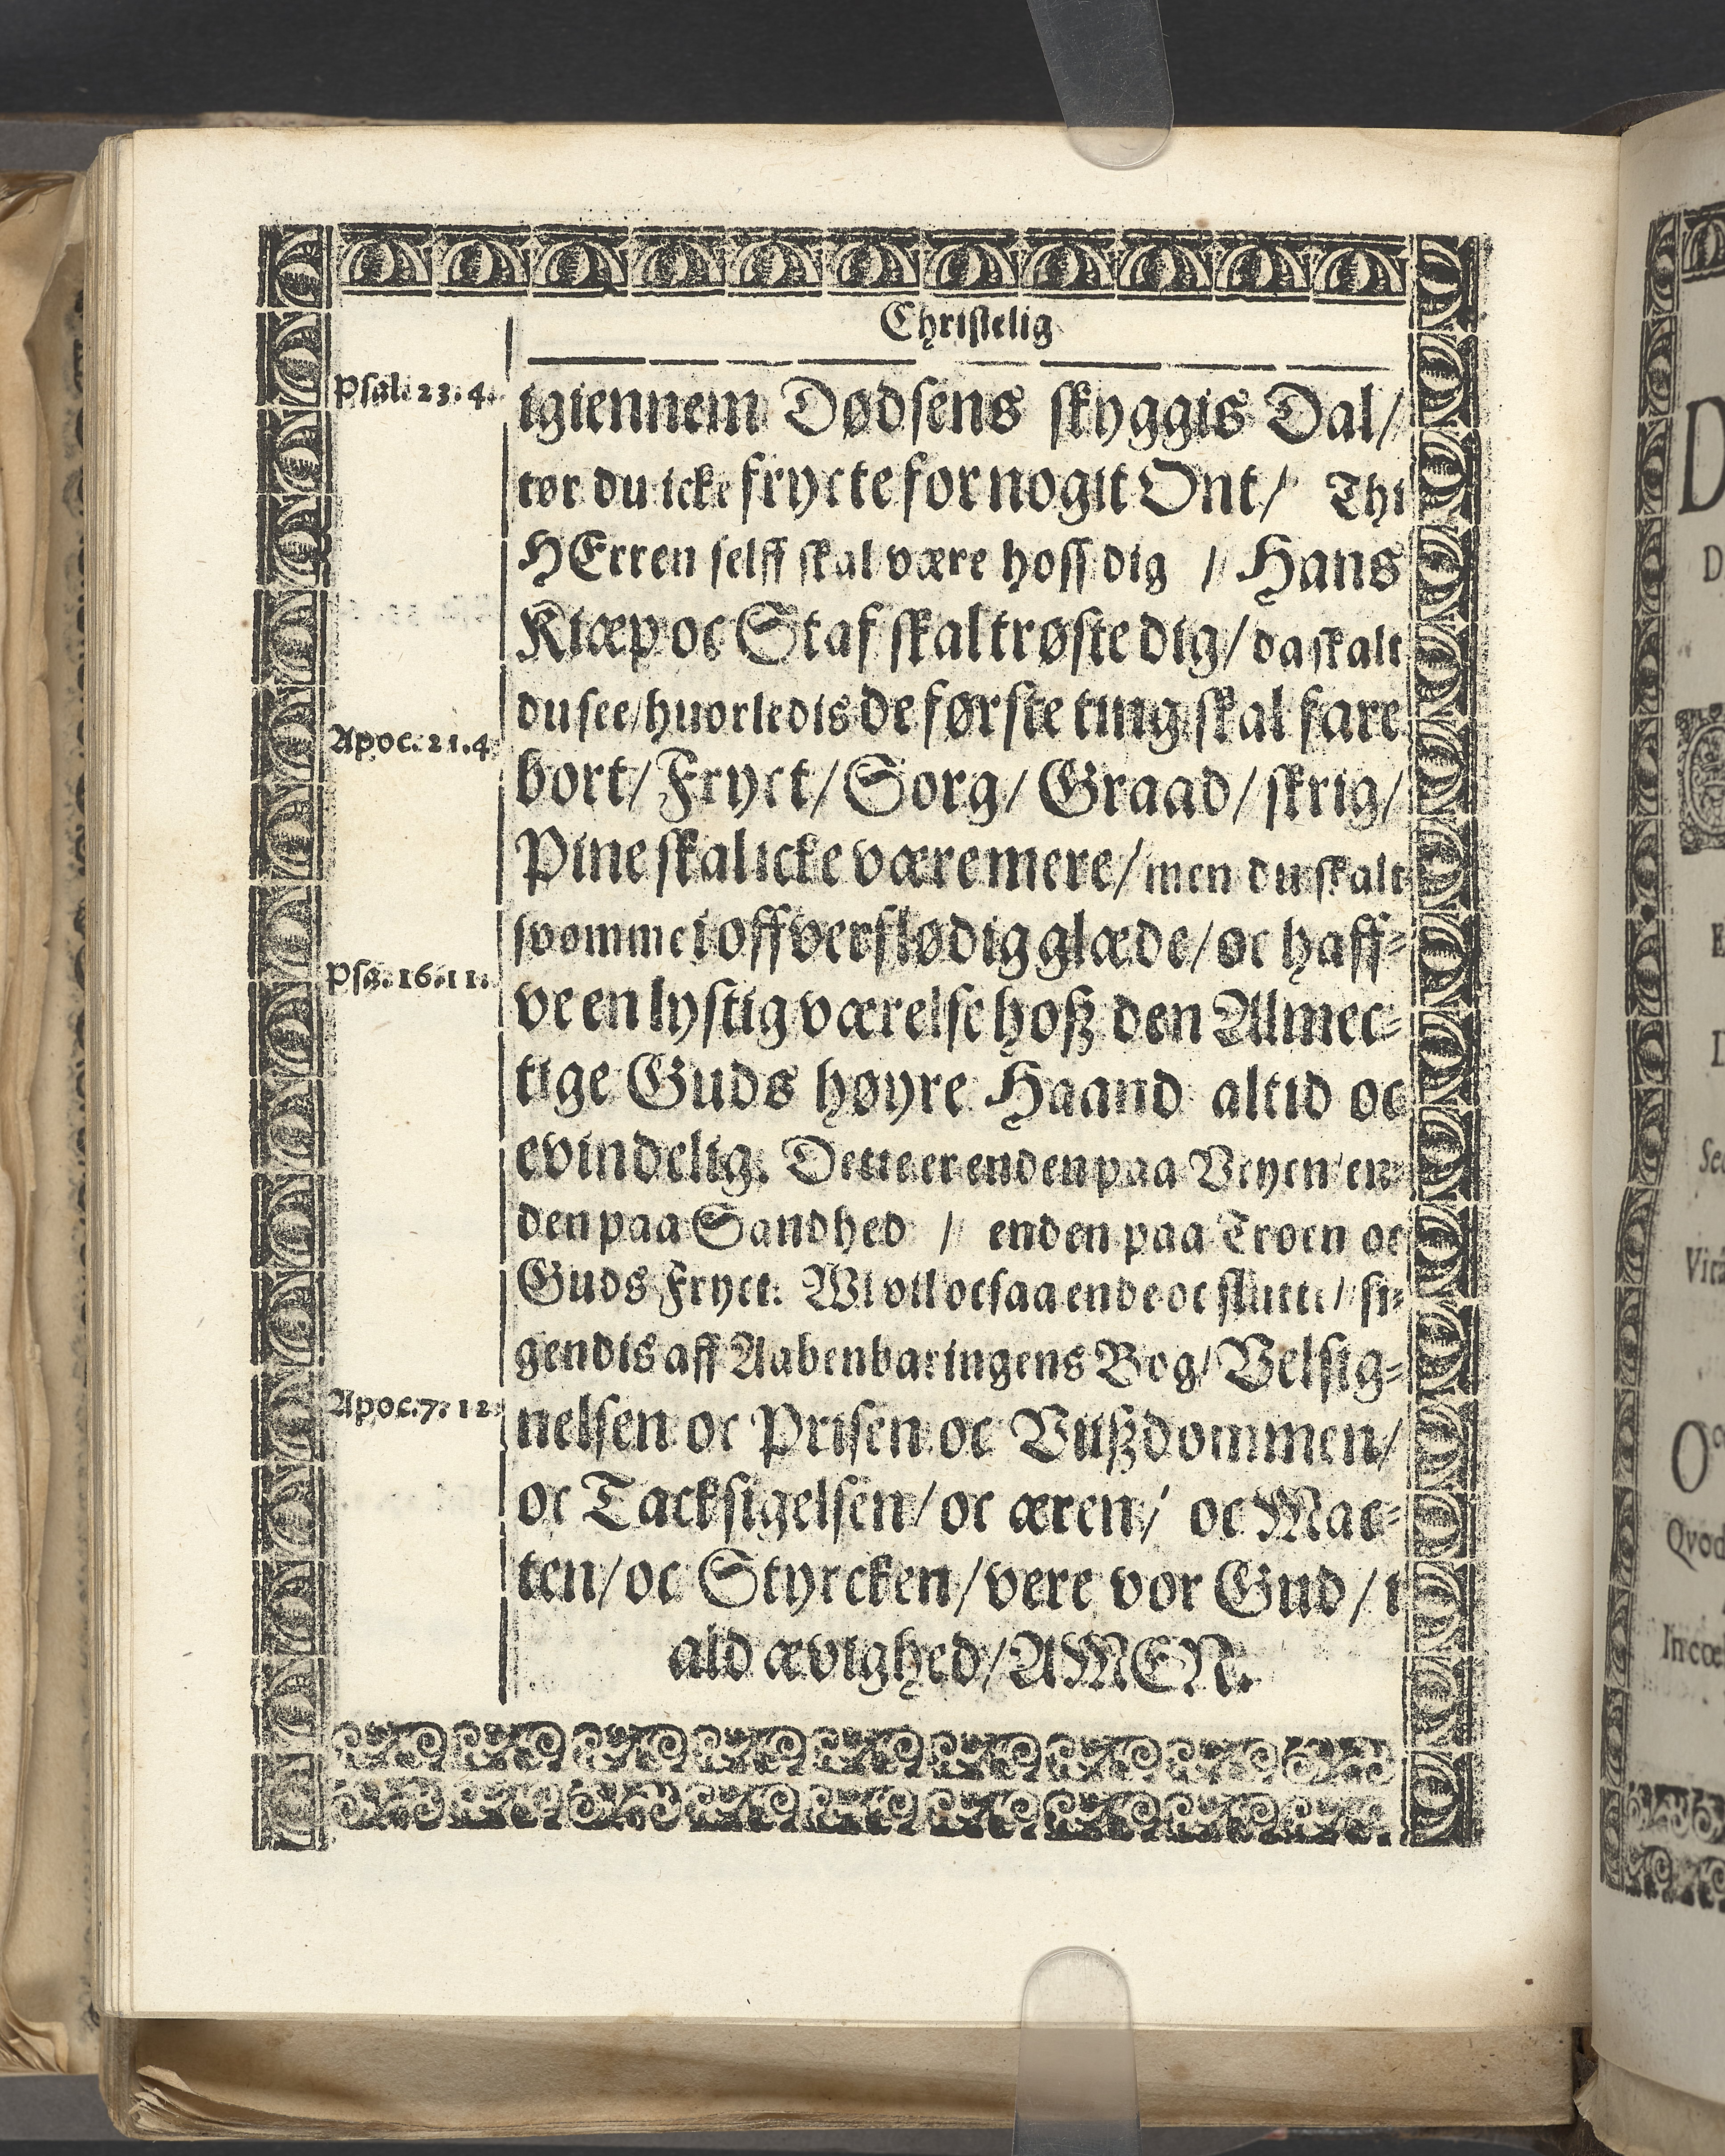 Christelig
Psal. 23. 4.
igiennem Dødsens skyggis Dal/
tør du icke frycte for nogit Ont/ Thi
HErren selff skal være hoss dig / Hans
Kiæp oc Staf skal trøste dig/ da skalt
du see/ huorledis de første ting skal fare
Apoc. 21. 4.
bort/ Fryct/ Sorg/ Graad/ skrig/
Pine skal icke være mere/ men du skalt
svømme i offverflødig glæde/ oc haff-
Psa. 16. 11.
ve en lystig værelse hoß den Almec-
tige Guds høyre Haand altid oc
evindelig. Dette er enden paa Veyen en-
den paa Sandhed / enden paa Troen oc
Guds Fryct. Wi vil ocsaa ende oc slutte/ si-
gendis aff Aabenbaringens Bog/ Velsig-
Apoc. 7. 12.
nelsen oc Prisen oc Viißdommen/
oc Tacksigelsen/ oc æren/ oc Mac-
ten/ oc Styrcken/ vere vor Gud/ i
ald ævighed/ AMEN.
Qvod